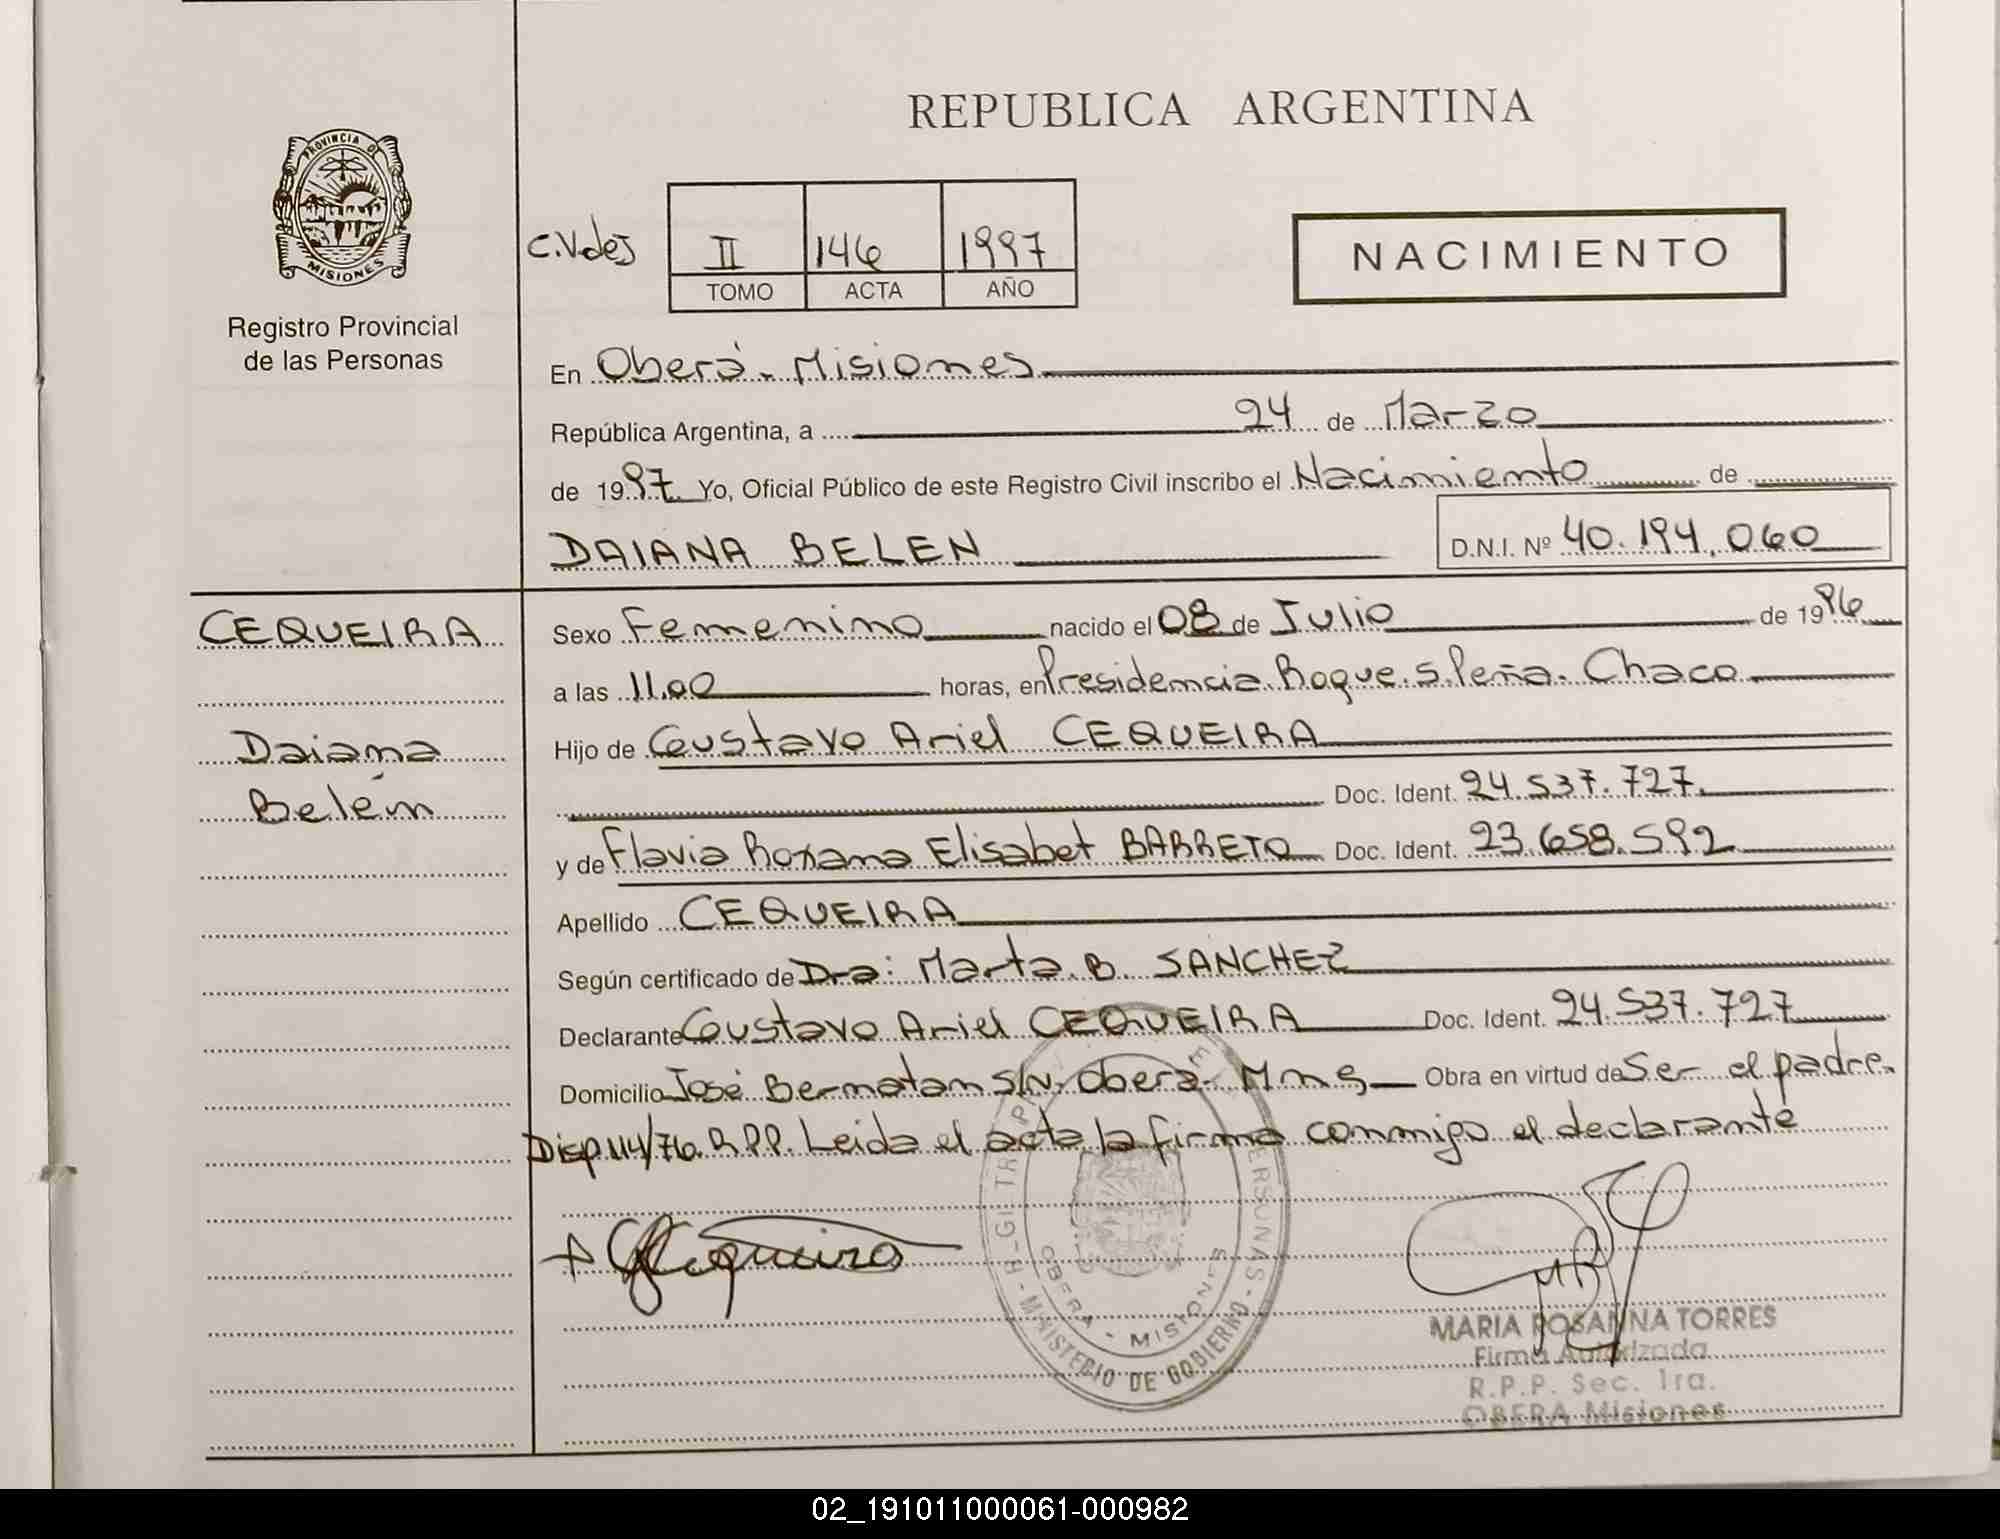 REPUBLICA ARGENTINA
PROVINCIA DE
MISIONES
Registro Provincial
de las Personas
C.Vdes
II 146 1997
TOMO ACTA AÑO
NACIMIENTO
En Oberá - Misiones
República Argentina, a 24 de Marzo
de 1997 Yo, Oficial Público de este Registro Civil inscribo el Nacimiento de
DAIANA BELEN D.N.I. Nº 40.194.060
CEQUEIRA
Daiana
Belén
Sexo Femenino nacido el 08 de Julio de 1996
a las 11.00 horas, en Presidencia Roque S. Peña. Chaco
Hijo de Gustavo Ariel CEQUEIRA
Doc. Ident. 24.537.727.
y de Flavia Roxana Elisabet BARRETO Doc. Ident. 23.658.592
Apellido CEQUEIRA
Según certificado de Dra: Marta B. SANCHEZ
Declarante Gustavo Ariel CEQUEIRA Doc. Ident. 24.537.727
Domicilio José Bernatan S/N. Oberá - Mnes Obra en virtud de Ser el padre.
Disp 114/76. R.P.P. Leida el acta la firma conmigo el declarante
Cequeira
MINISTERIO DE GOBIERNO
OBERA - MISIONES
MARIA ROSANNA TORRES
Firma Autorizada
R.P.P. Sec. 1ra.
OBERA Misiones
02_191011000061-000982